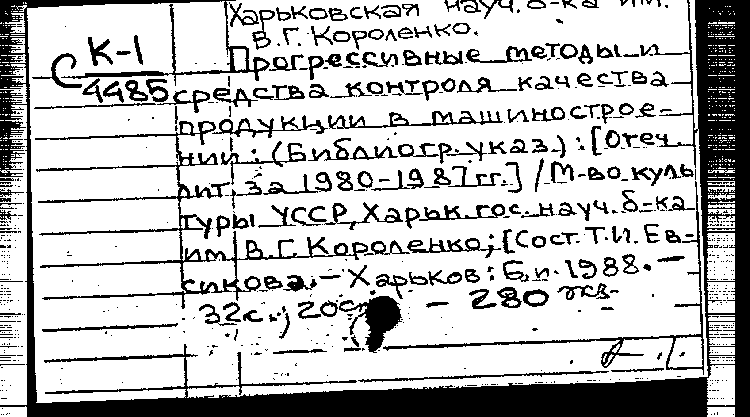 Харьковская науч. б-ка им.
В.Г. Короленко.
С К-1
4485
Прогрессивные методы и
средства контроля качества
продукции в машинострое-
нии: (Библиогр. указ.): [Отеч.
лит. за 1980-1987 гг.] / М-во куль
туры УССР, Харьк. гос. науч. б-ка
им. В.Г. Короленко; [Сост. Т.И. Ев-
сикова. - Харьков: Б.и. 1988. -
32с.; 20см - 280 экз.